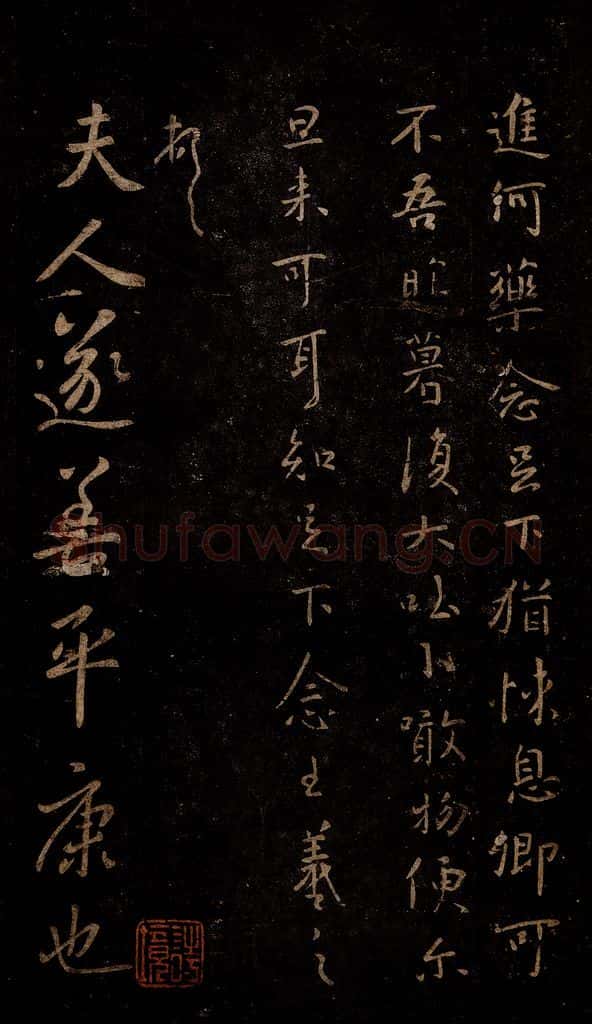 進何藥念足下猶悚息卿可
不吾昨暮復大吐小噉物便尔
旦来可耳知足下念王羲之
頓
夫人遂善平康也
shufawang.CN